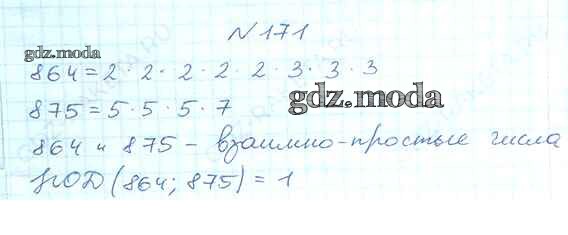 №171
gdz.moda
864 = 2 · 2 · 2 · 2 · 2 · 3 · 3 · 3
875 = 5 · 5 · 5 · 7
gdz.moda
864 и 875 - взаимно-простые числа
НОД (864; 875) = 1